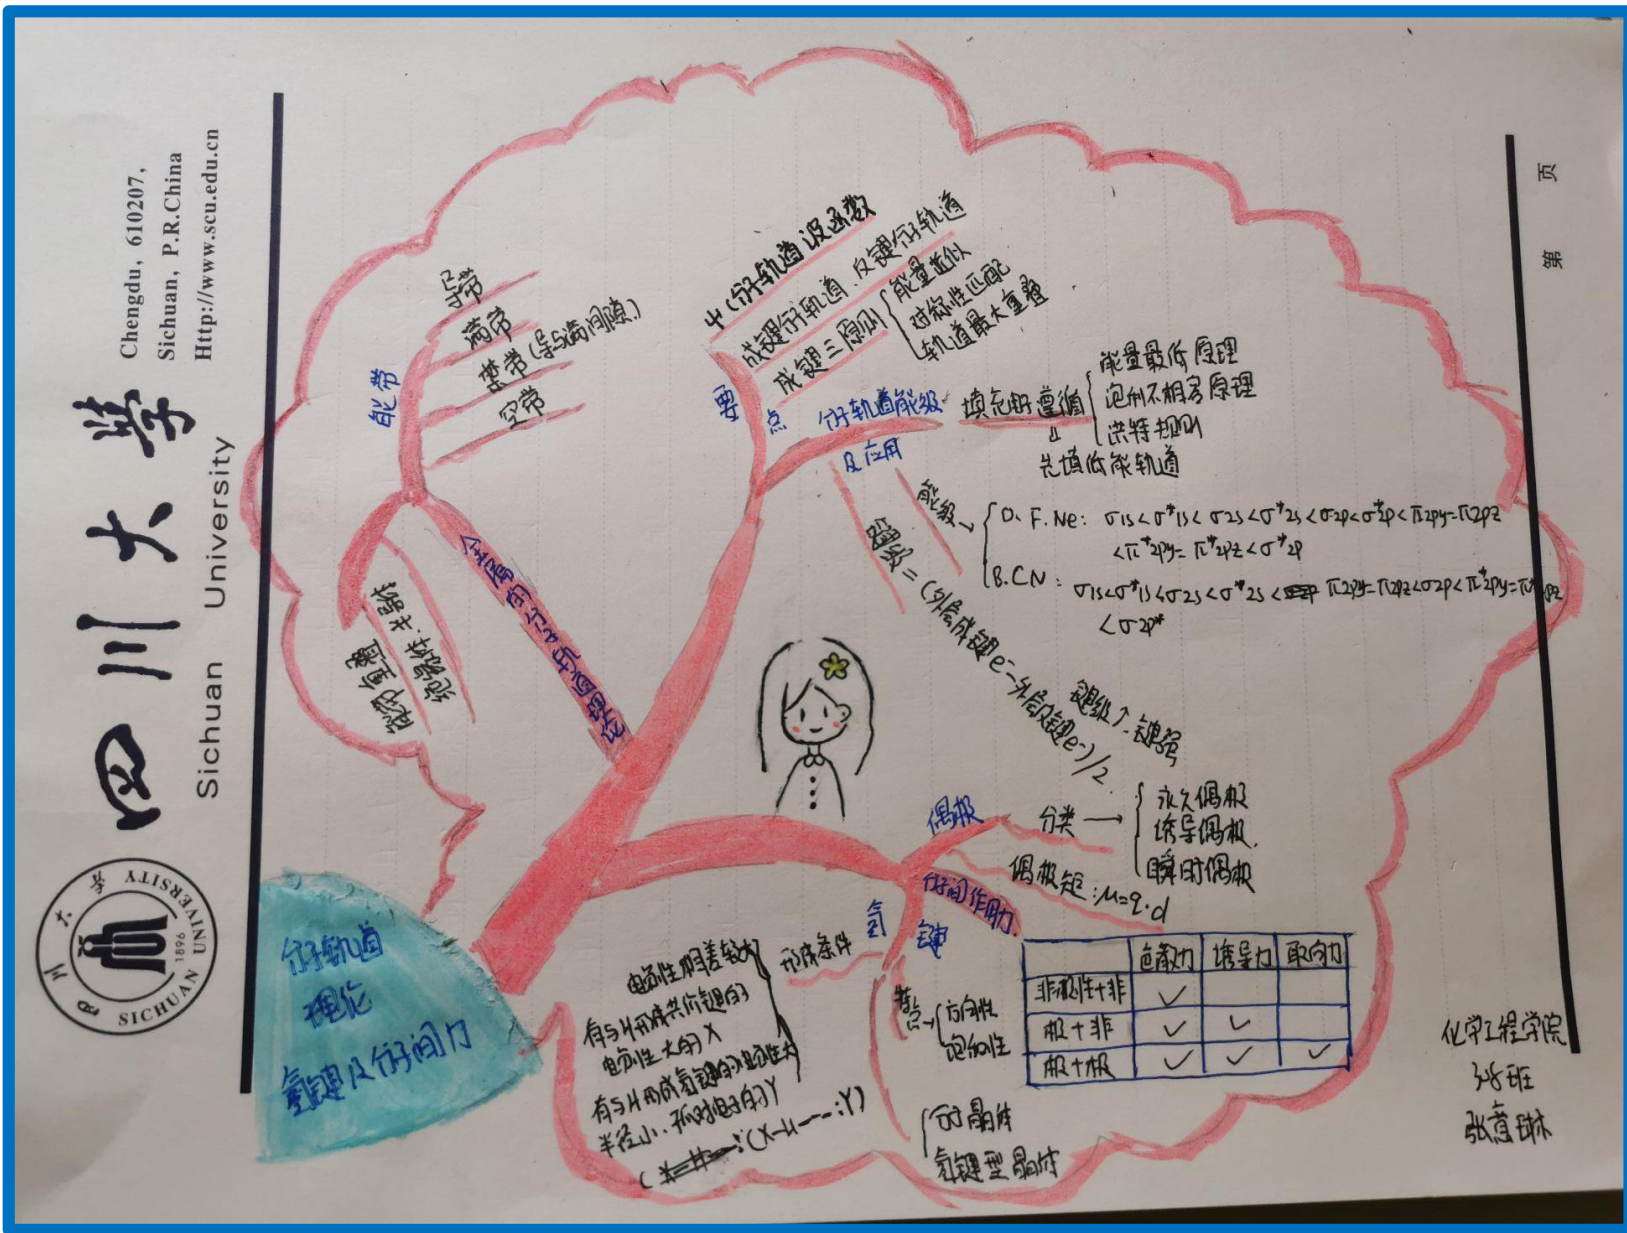 Chengdu, 610207,
Sichuan, P.R.China
Http://www.scu.edu.cn
四川大学
Sichuan University
四川大学
SICHUAN UNIVERSITY
1896
第 页
分子轨道
理论
氢键及分子间力
金属的分子轨道理论
能带
导带
满带
禁带(导与满间隙)
空带
能带重叠
要点
ψ(分子轨道)波函数
成键分子轨道、反键分子轨道
成键三原则
能量近似
对称性匹配
轨道最大重叠
分子轨道能级
及应用
填充时遵循
能量最低原理
泡利不相容原理
洪特规则
先填低能轨道
能级
O. F. Ne: σ1s<σ*1s<σ2s<σ*2s<σ2p<σ*2p<π2py=π2pz
<π*2py=π*2pz<σ*2p
B.C.N: σ1s<σ*1s<σ2s<σ*2s<π2py=π2pz<σ2p<π*2py=π*2pz
<σ2p*
键级=(外层成键e⁻-外层反键e⁻)/2
键级↑.键强
偶极
分类→
永久偶极
诱导偶极.
瞬时偶极
偶极矩:μ=q·d
分子间作用力
色散力 诱导力 取向力
非极性+非 ✓
极+非 ✓ ✓
极+极 ✓ ✓ ✓
氢键
形成条件
电负性相差较大
有与H形成共价键的
电负性大的X
有与H形成氢键的电负性大
半径小、孤对电子的Y
(X-H---:Y)
特点→
方向性
饱和性
分子晶体
氢键型晶体
化学工程学院